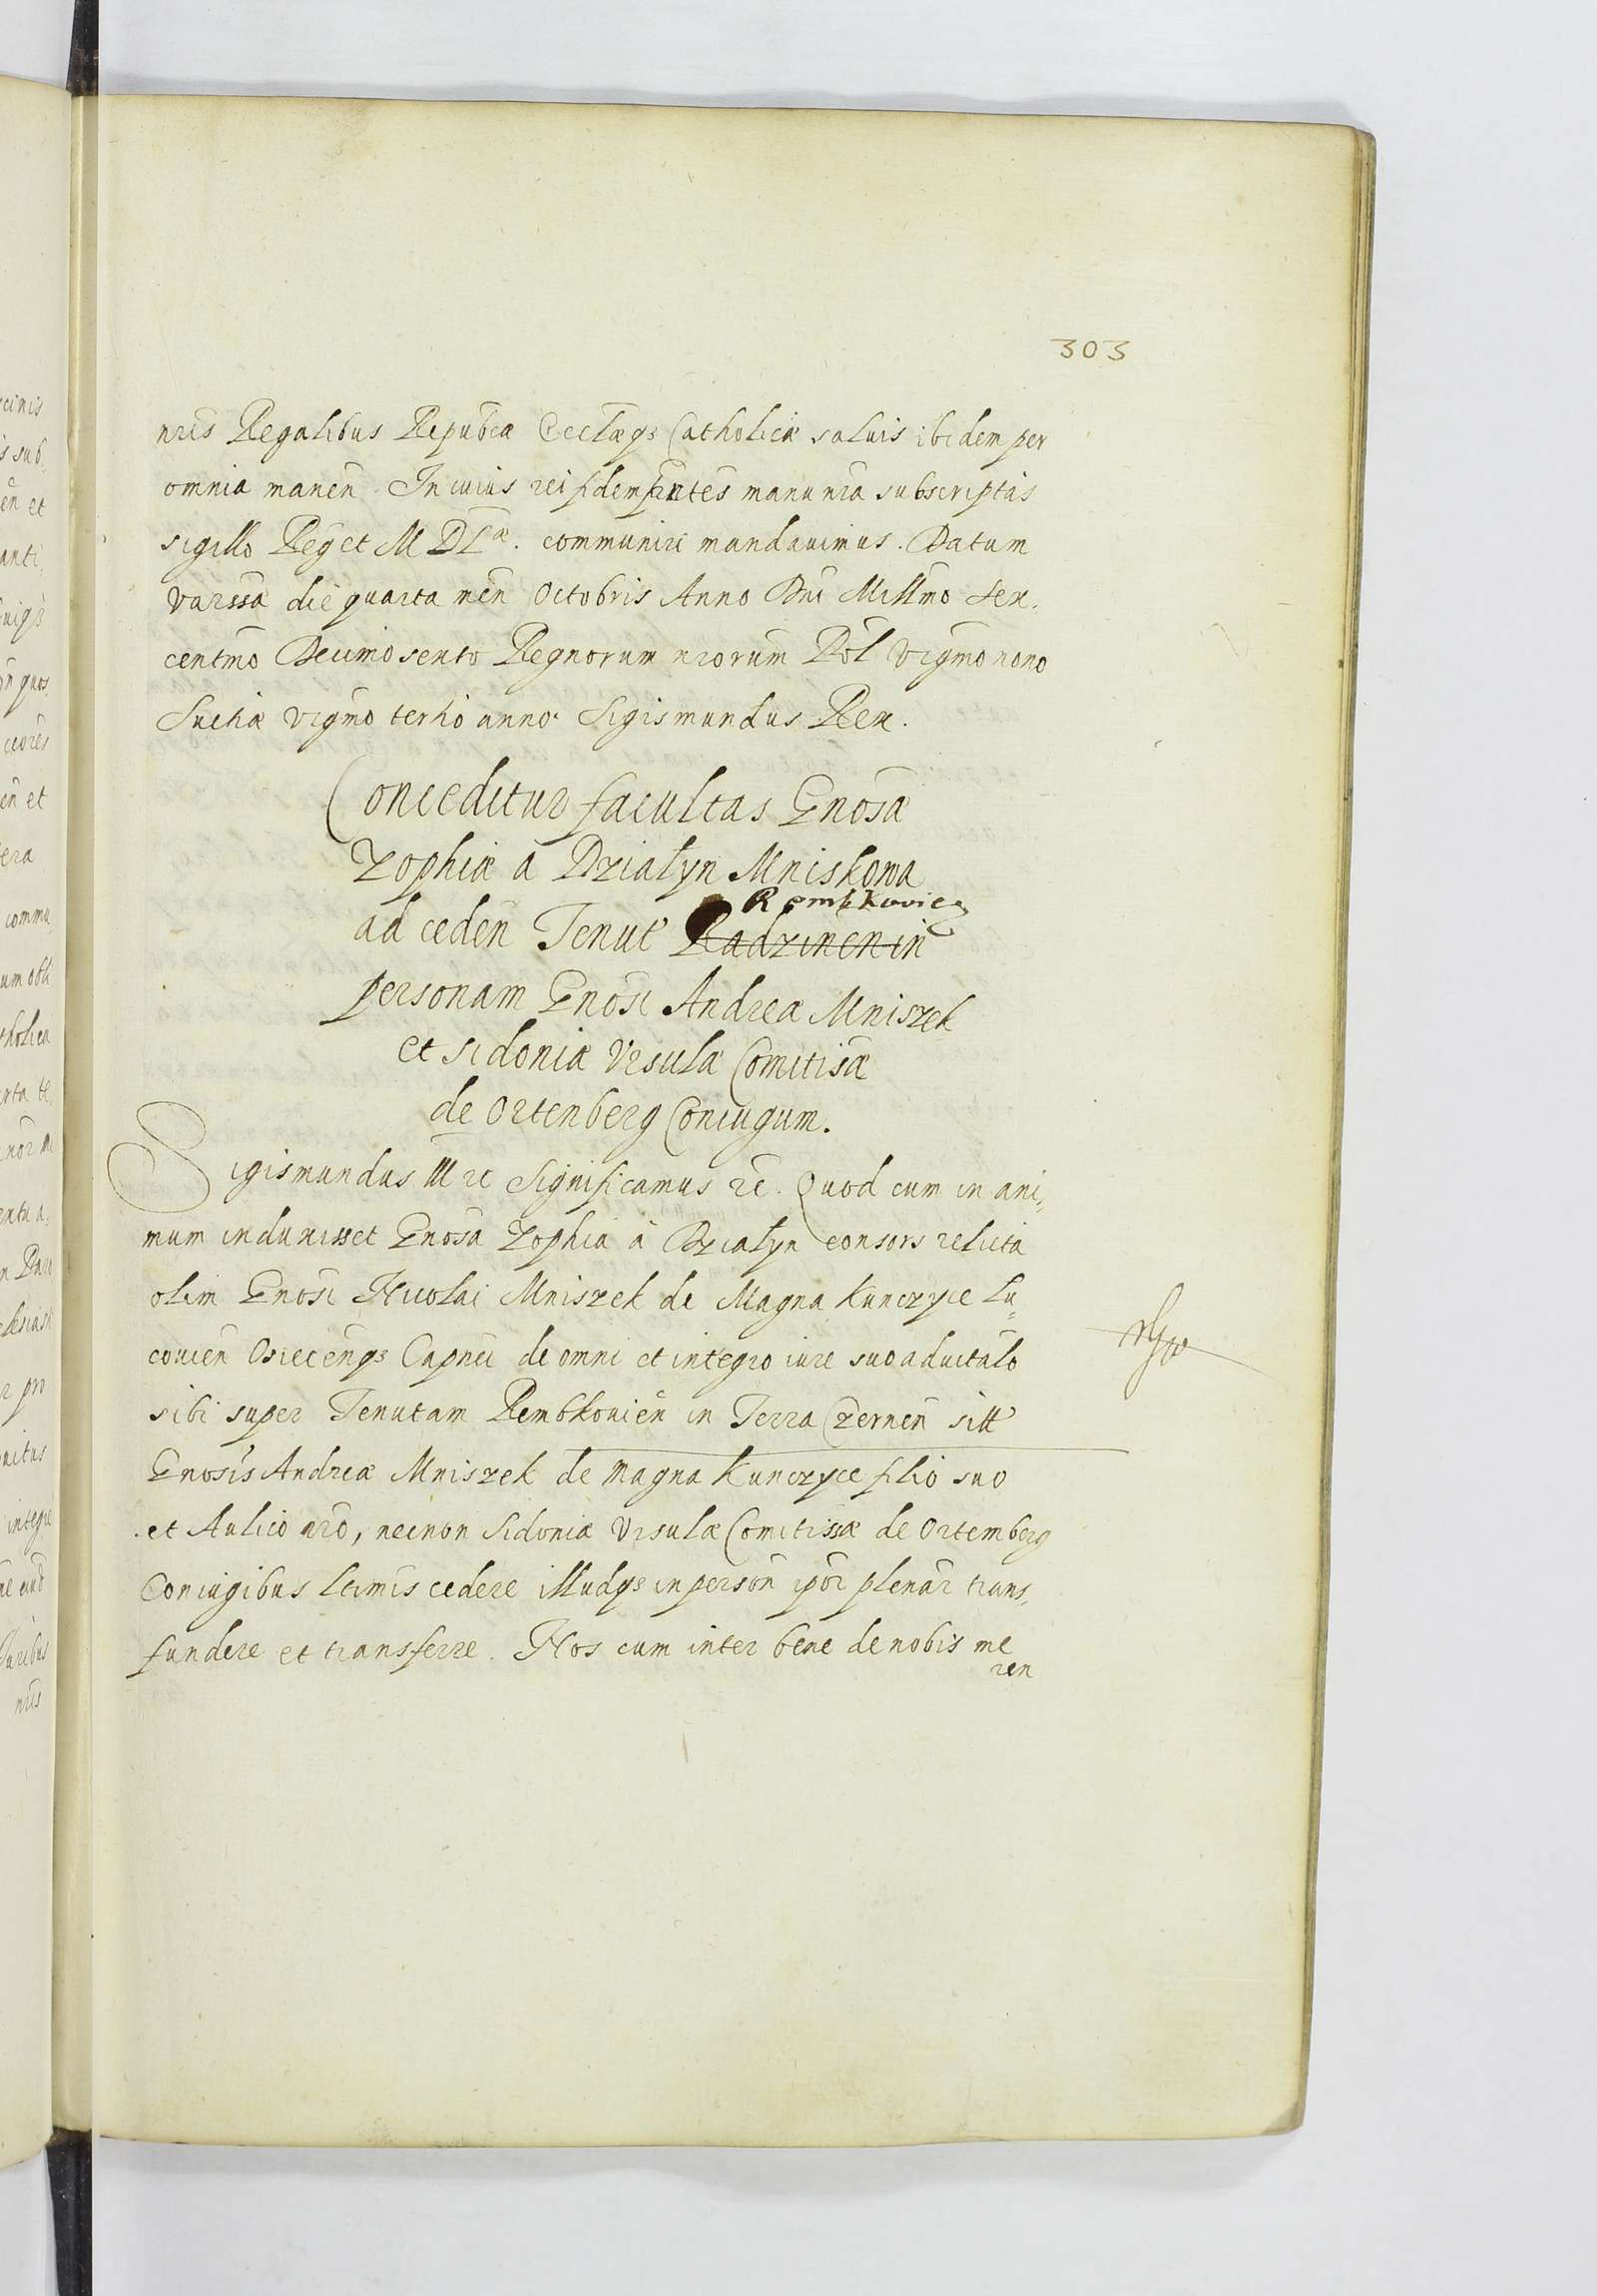 303
nris Regalibus Repubcæ Ecclæqз Catholicæ saluis ibidem per
omnia manen̄. In cuius rei fidem pn̄tes manu nr̄a subscriptas
sigillo Reg et M D Lᵃᵉ. communiri mandauimus. Datum
Varssa die quarta men̄ Octobris Anno Dn̄i Millm̄o sex,
centm̄o Decimosexto Regnorum nr̄orum Pol̄ vigm̄o nono
Suetiæ vigm̄o tertio anno. Sigismundus Rex.
Conceditur facultas Gnosæ
Zophiæ a Dzialyn Mniskowa
Rembkovien
ad ceden̄ Tenut Radzinen in
personam Gnosi Andreæ Mniszek
et Sidoniæ Vrsulæ Comitisæ
de Ortenberg Coniugum.
Sigismundus III rc Significamus rc. Quod cum in ani,
mum induxisset Gnosa Zophia à Dzialyn consors relicta
olim Gnosi Nicolai Mniszek de Magna Kunczyce Lu,
couien̄ Osiecen̄qз Capnei de omni et integro iure suo aduitālo
sibi super Tenutam Rembkouien̄ in Terra Czernen̄ sitt
Gnosis Andreæ Mniszek de Magna Kunczyce filio suo
et Aulico nr̄o, necnon Sidoniæ Vrsulæ Comitissæ de Ortemberg
Coniugibus l̄timis cedere illudqз in person̄ ipor̄ plenar̄ trans,
fundere et transferre. Nos cum inter bene de nobis me
ren